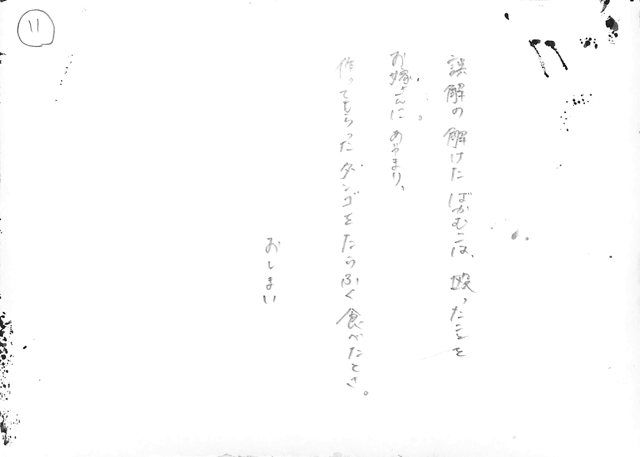 11
誤解の解けたばかむこは、殴った事を
お嫁さんにあやまり、
作ってもらったダンゴをたらふく食べたとさ。
おしまい